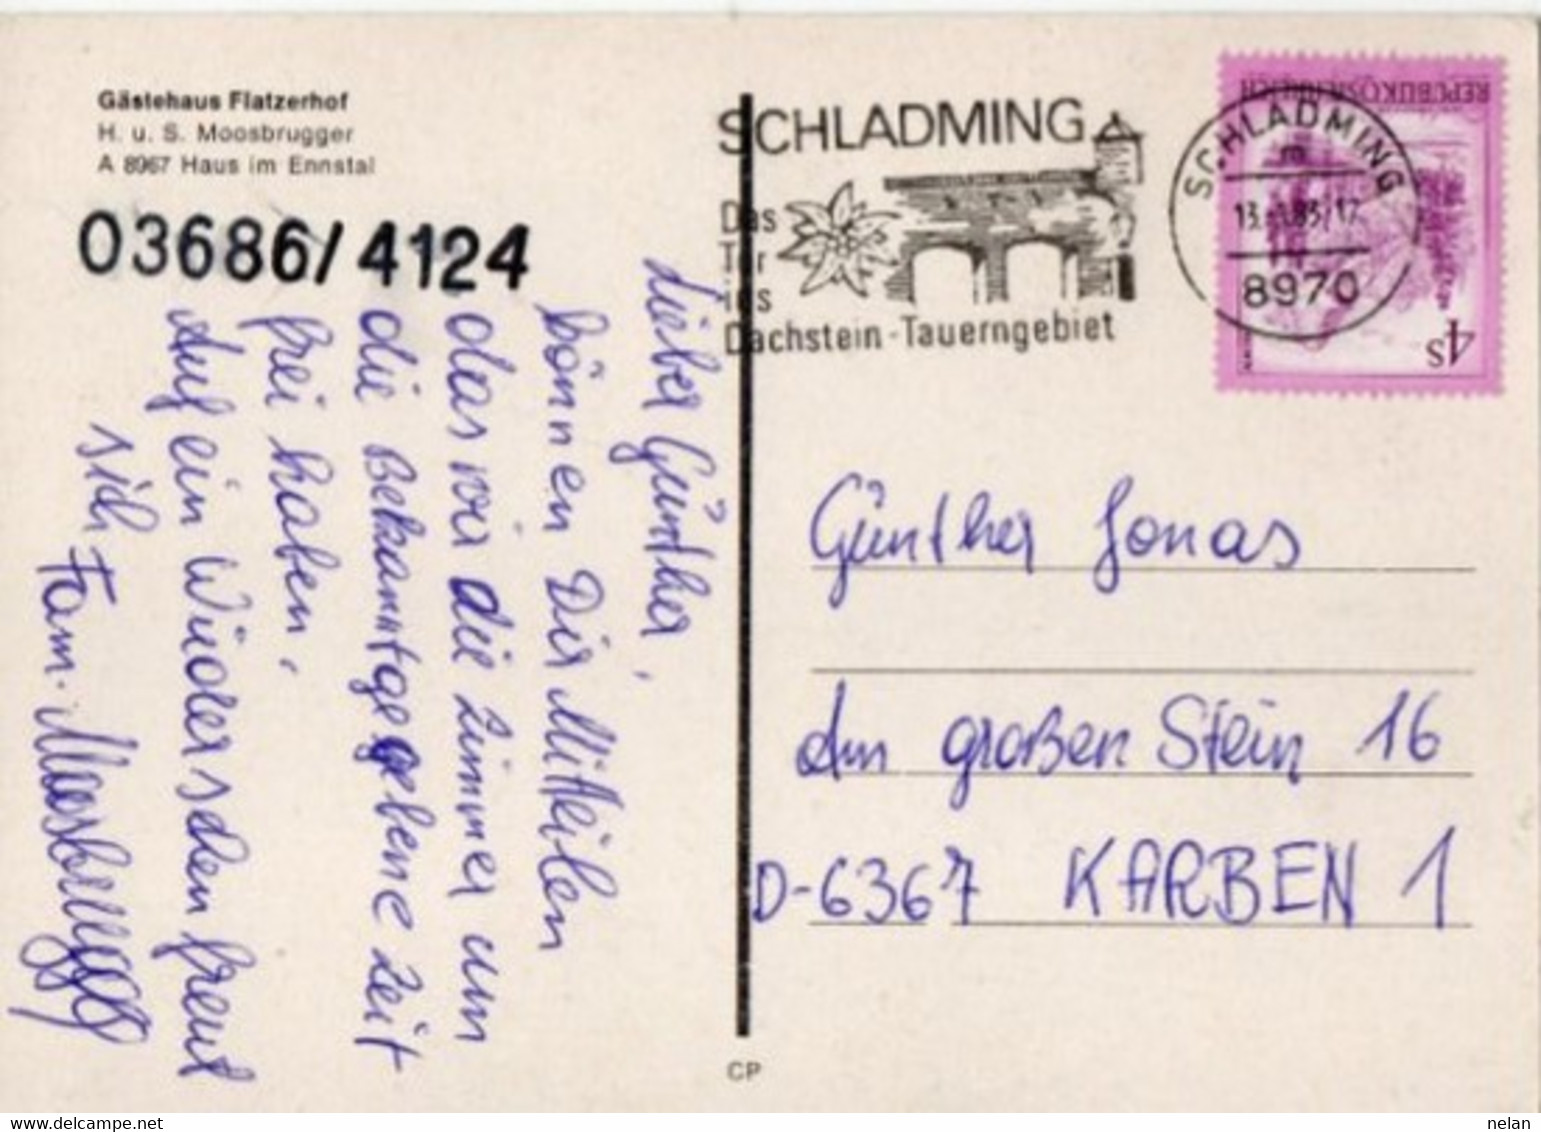 Gästehaus Flatzerhof
H. u. S. Moosbrugger
A 8967 Haus im Ennstal
03686/4124
Lieber Günther,
können Dir Mitteilen
das wir die Zimmer um
die Bekanntgegebene Zeit
frei haben.
Auf ein Wiedersehen freut
sich Fam. Moosbrugger
SCHLADMING
Das
Tor
ins
Dachstein-Tauerngebiet
SCHLADMING
8970
REPUBLIK ÖSTERREICH
4S
Günther Jonas
Am großen Stein 16
D-6367 KARBEN 1
CP
www.delcampe.net
nelan